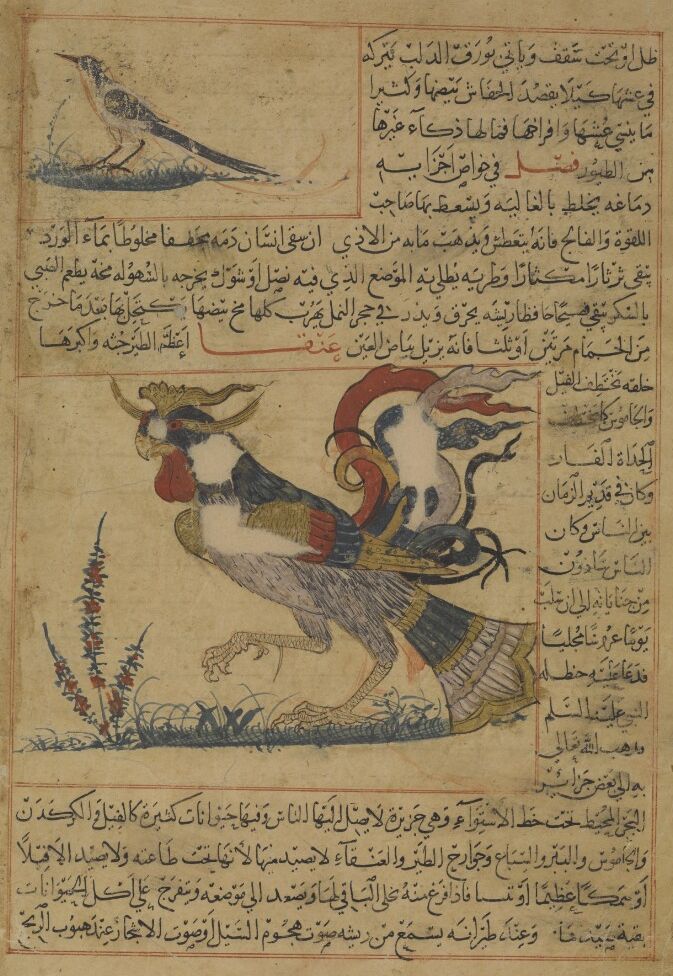 ظل او تحت سقف وياتى بورق الدلب يتركه
فى عشها كيلا يقصد الخفاش بيضها وكثيرا
ما ينسى عشها وافراخها فمالها ذكاء غيرها
من الطيور فصل فى خواص اجزايه
دماغه يخلط بالغاليه ويسعط بها صاحب
اللقوة والفالج فانه يتعطس ويذهب مابه من الاذى ان سقى انسان دمه مجففا مخلوطا بماء الورد
يبقى ثرثارا مكثارا وطريه يطلى به الموضع الذى فيه نصل او شوك يخرجه بالسهوله مخه يطعم الصبى
بالسكر يبقى فصيحا حافظا ريشه يحرق ويذر فى حجر النمل يهرب كلها مخ بيضها يكتحل بها بعد ما خرج
من الحمام مرتين او ثلثا فانه يزيل بياض العين عنقا اعظم الطير جثه واكبرها
خلقه تخطف الفيل
والجاموس كما تخطف
الحداة الفار
وكان فى قديم الزمان
بين الناس وكان
الناس يتاذون
من جناياته الى ان سلب
يوما عروسا مجليا
فدعا عليه حنظله
النبى عليه السلم
فذهب الله تعالى
به الى بعض جزائر
البحر المحيط تحت خط الاستواء وهى جزيرة لا يصل اليها الناس وفيها حيوانات كثيرة كالفيل والكركدن
والجاموس والببر والسباع وجوارح الطير والعنقاء لا يصيد منها لانها تحت طاعته ولا يصيد الا فيلا
او سمكا عظيما او تنينا فاذا فرغ منه يخلى الباقى لها ويصعد الى موضعه ويتفرج على اكل الحيوانات
بقية صيدها وعند طيرانه يسمع من ريشه صوت هجوم السيل او صوت الاشجار عند هبوب الريح